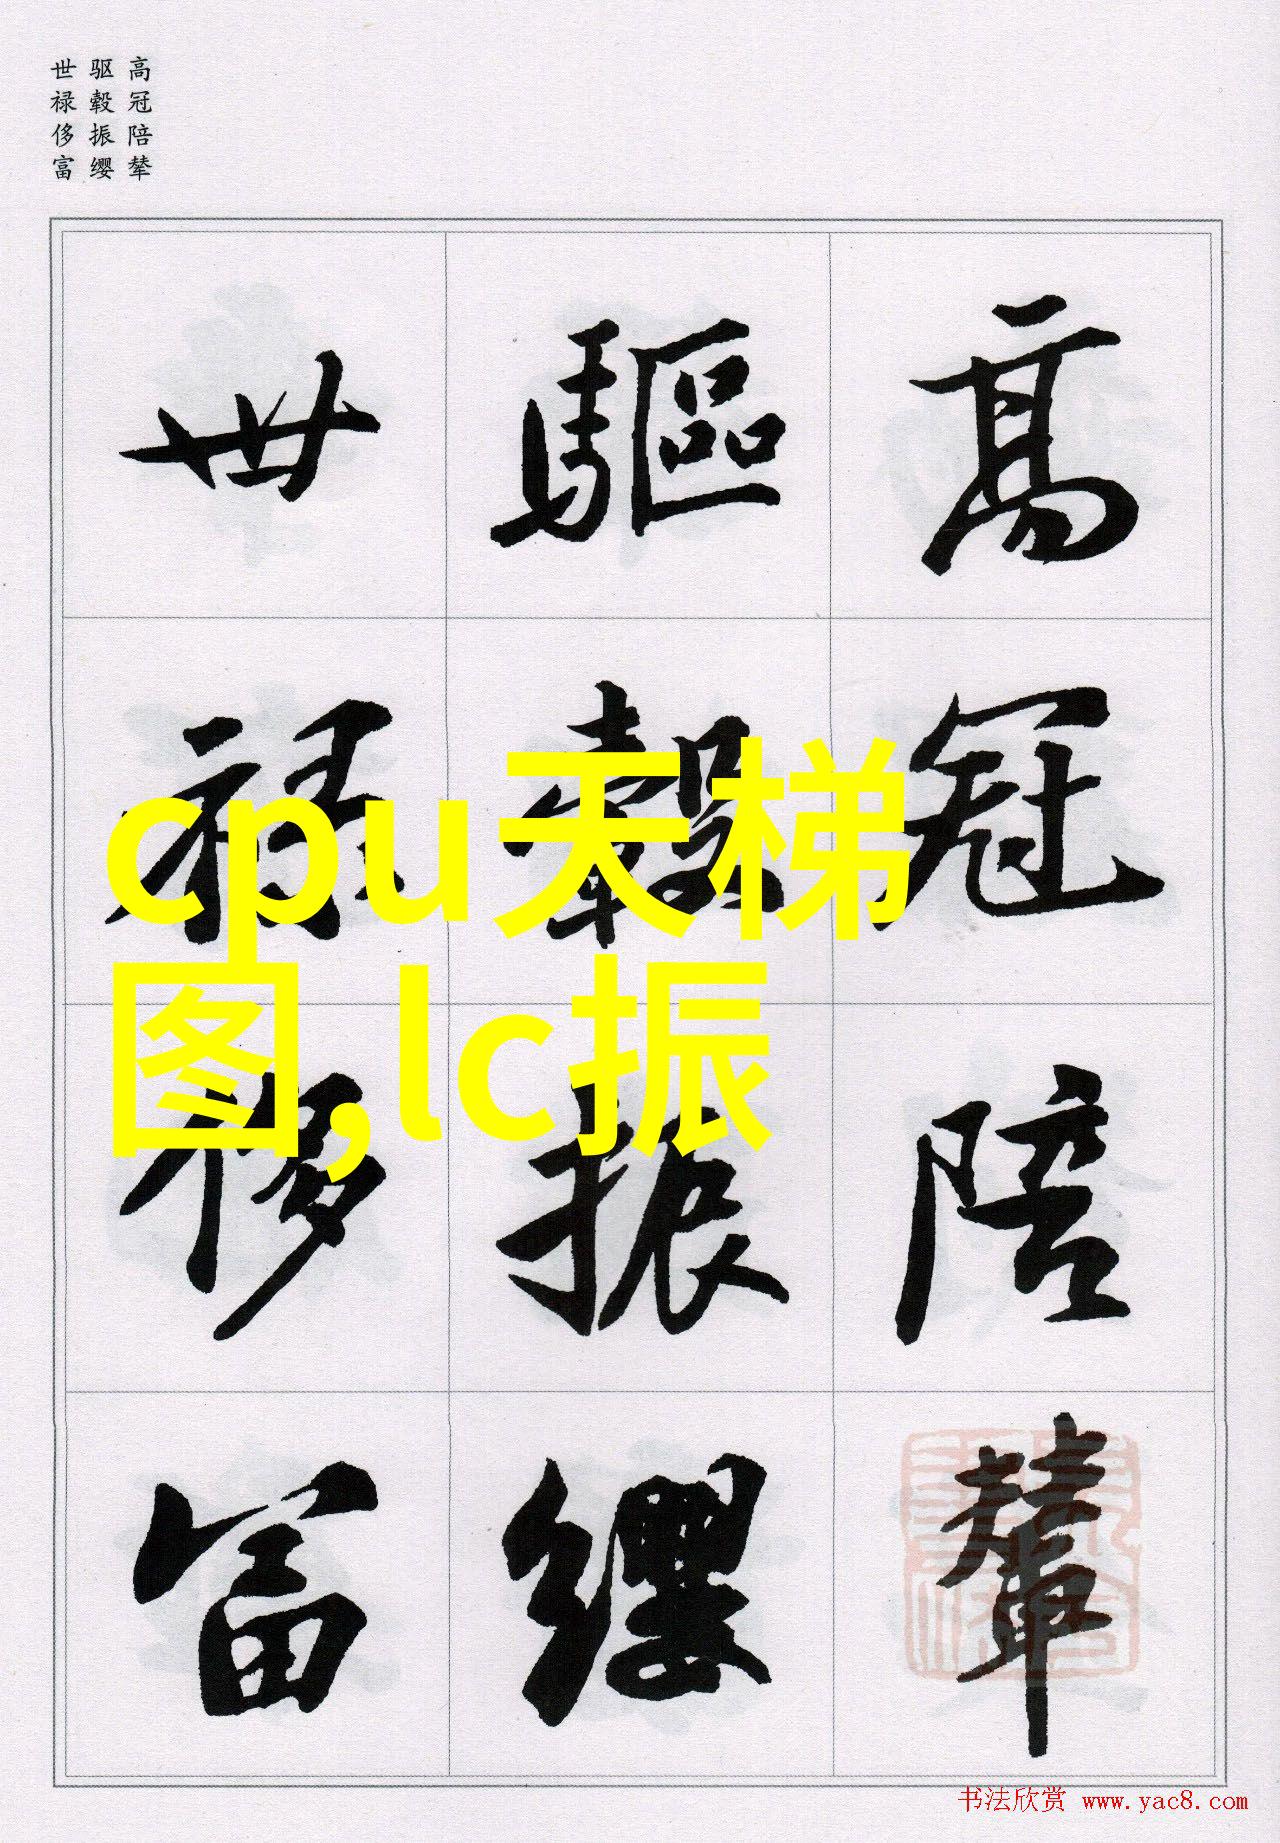 高冠陪辇
驱毂振缨
世禄侈富
高冠陪輦
驅轂振纓
世禄侈富
cpu天梯
图,lc振
书法欣赏 www.yac8.com